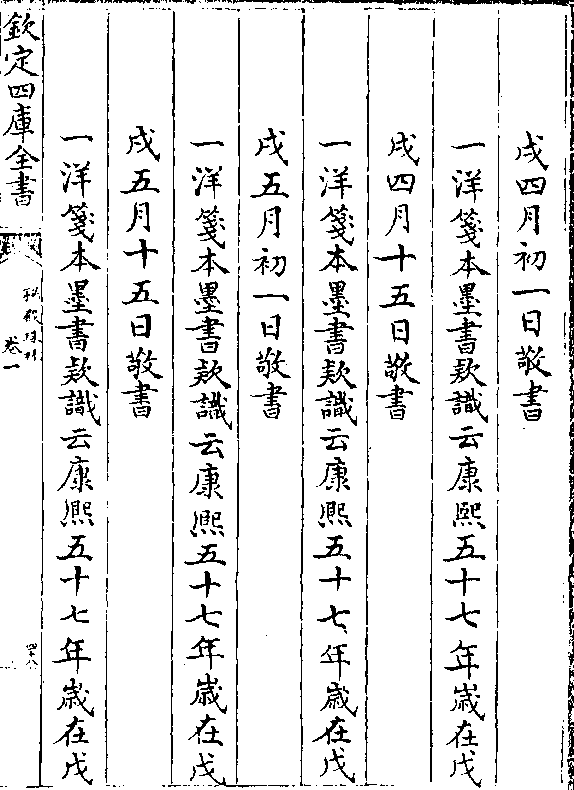 戌四月初一日敬書
一洋箋本墨書款識云康熙五十七年歲在戊
戌四月十五日敬書
一洋箋本墨書款識云康熙五十七年歲在戊
戌五月初一日敬書
一洋箋本墨書款識云康熙五十七年歲在戊
戌五月十五日敬書
一洋箋本墨書款識云康熙五十七年歲在戊
欽定四庫全書
卷一